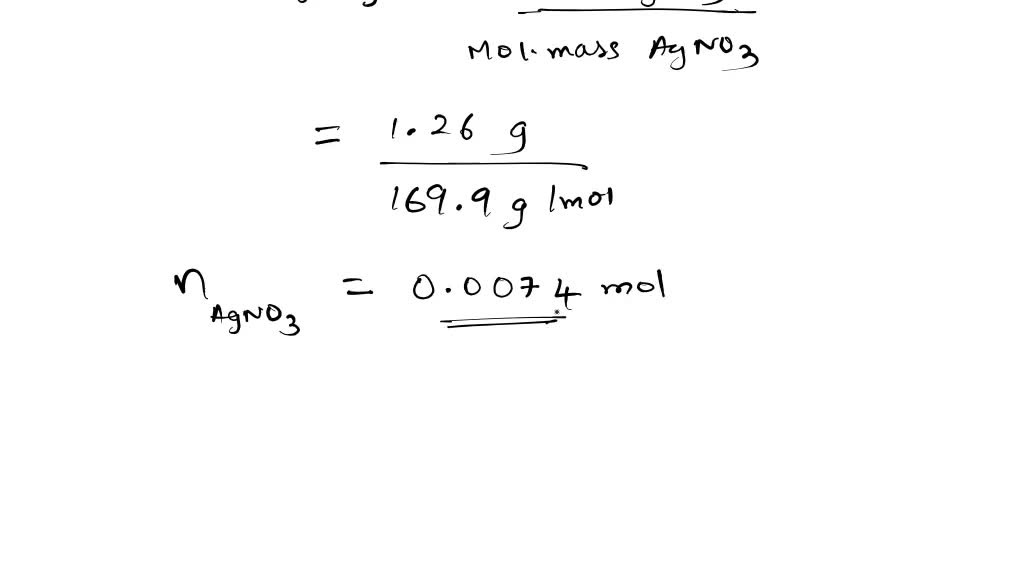 Mol. mass AgNO3
= 1.26 g
169.9 g /mol
n AgNO3 = 0.0074 mol